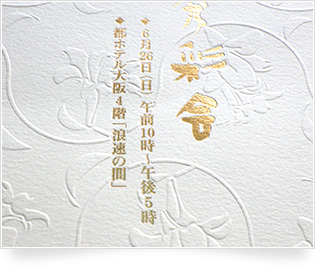 彩会
◆6月26日(日)午前10時〜午後5時
◆都ホテル大阪4階「浪速の間」